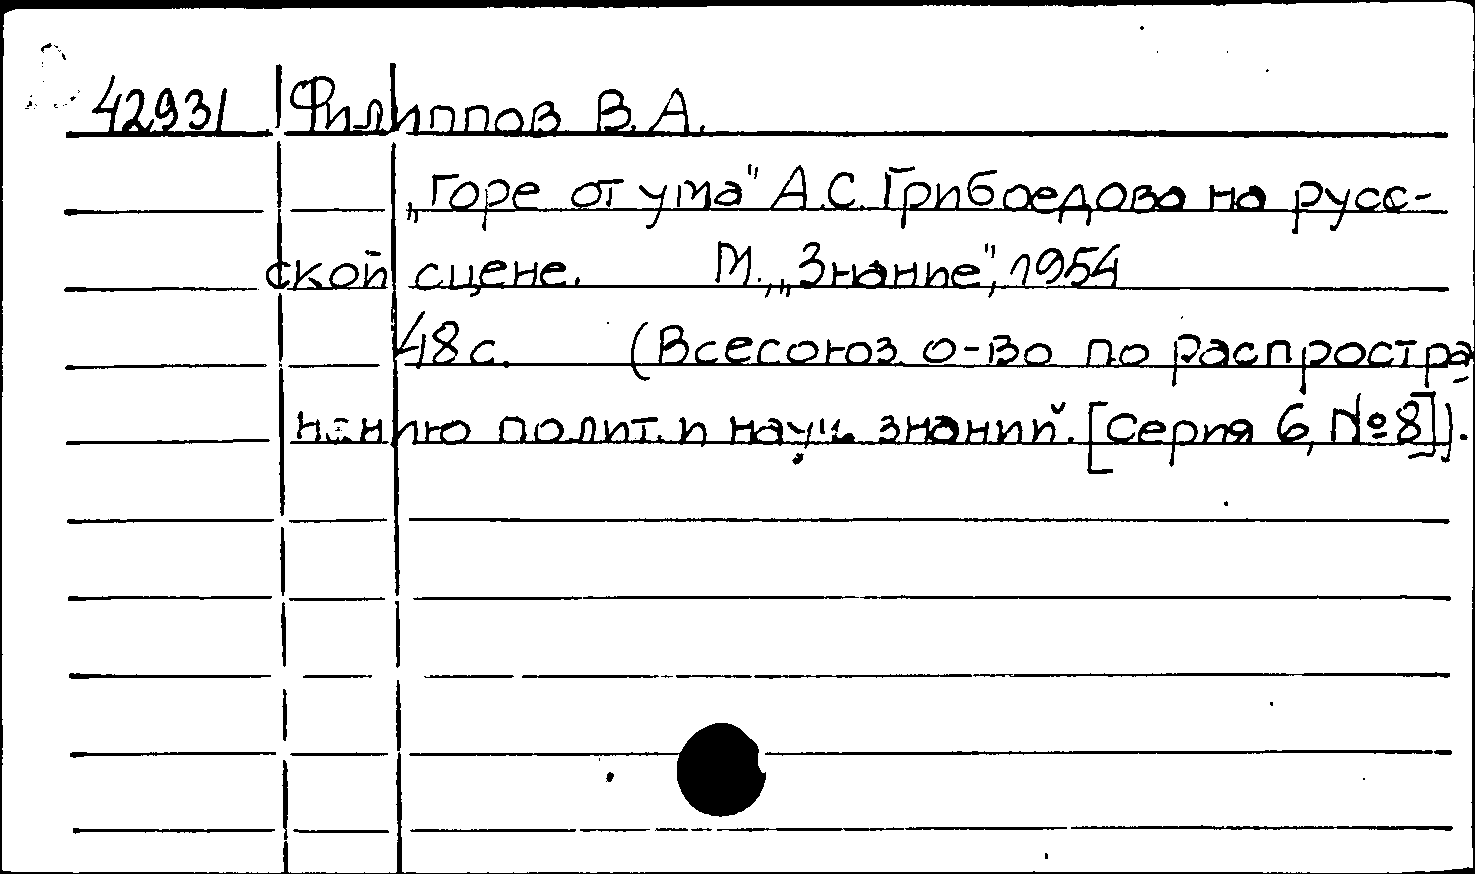 42931 Филиппов В.А.
„Горе от ума" А.С. Грибоедова на русс-
ской сцене. М., „Знание", 1954
48 с. (Всесоюз. о-во по распростра-
нению полит. и науч. знаний. [Серия 6, №8]).